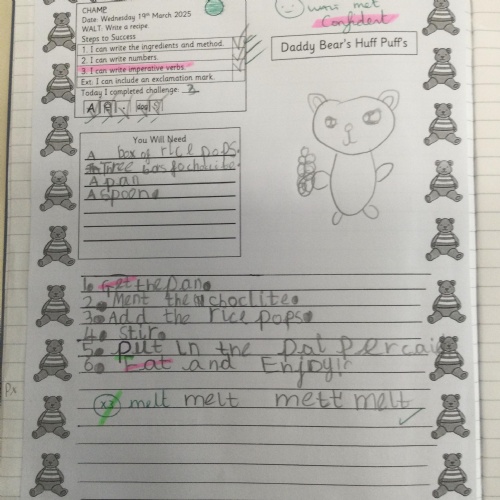 CHAMP
Date: Wednesday 19th March 2025
WALT: Write a recipe.
Steps to Success
1. I can write the ingredients and method.
2. I can write numbers.
3. I can write imperative verbs.
Ext. I can include an exclamation mark.
Today I completed challenge: 3
was met
Confident
Daddy Bear's Huff Puff's
You Will Need
A box of rice pops.
Three bars fo
A pan
A spoon.
1. Get the pan.
2. Ment the choclite.
3. Add the rice pops.
4. Stir.
5. Put in the
6. Eat and Enjoy!
x3 melt melt mett melt
Px